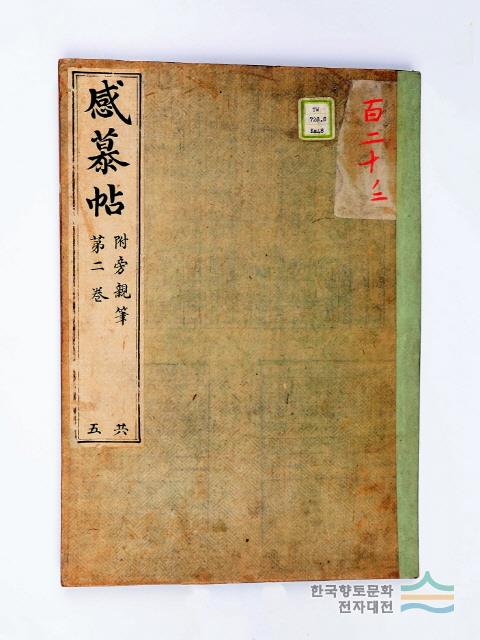 感慕帖
附旁親筆
第二卷
共
五
TW
728.8
Em48
百二十ノ三
한국향토문화
전자대전